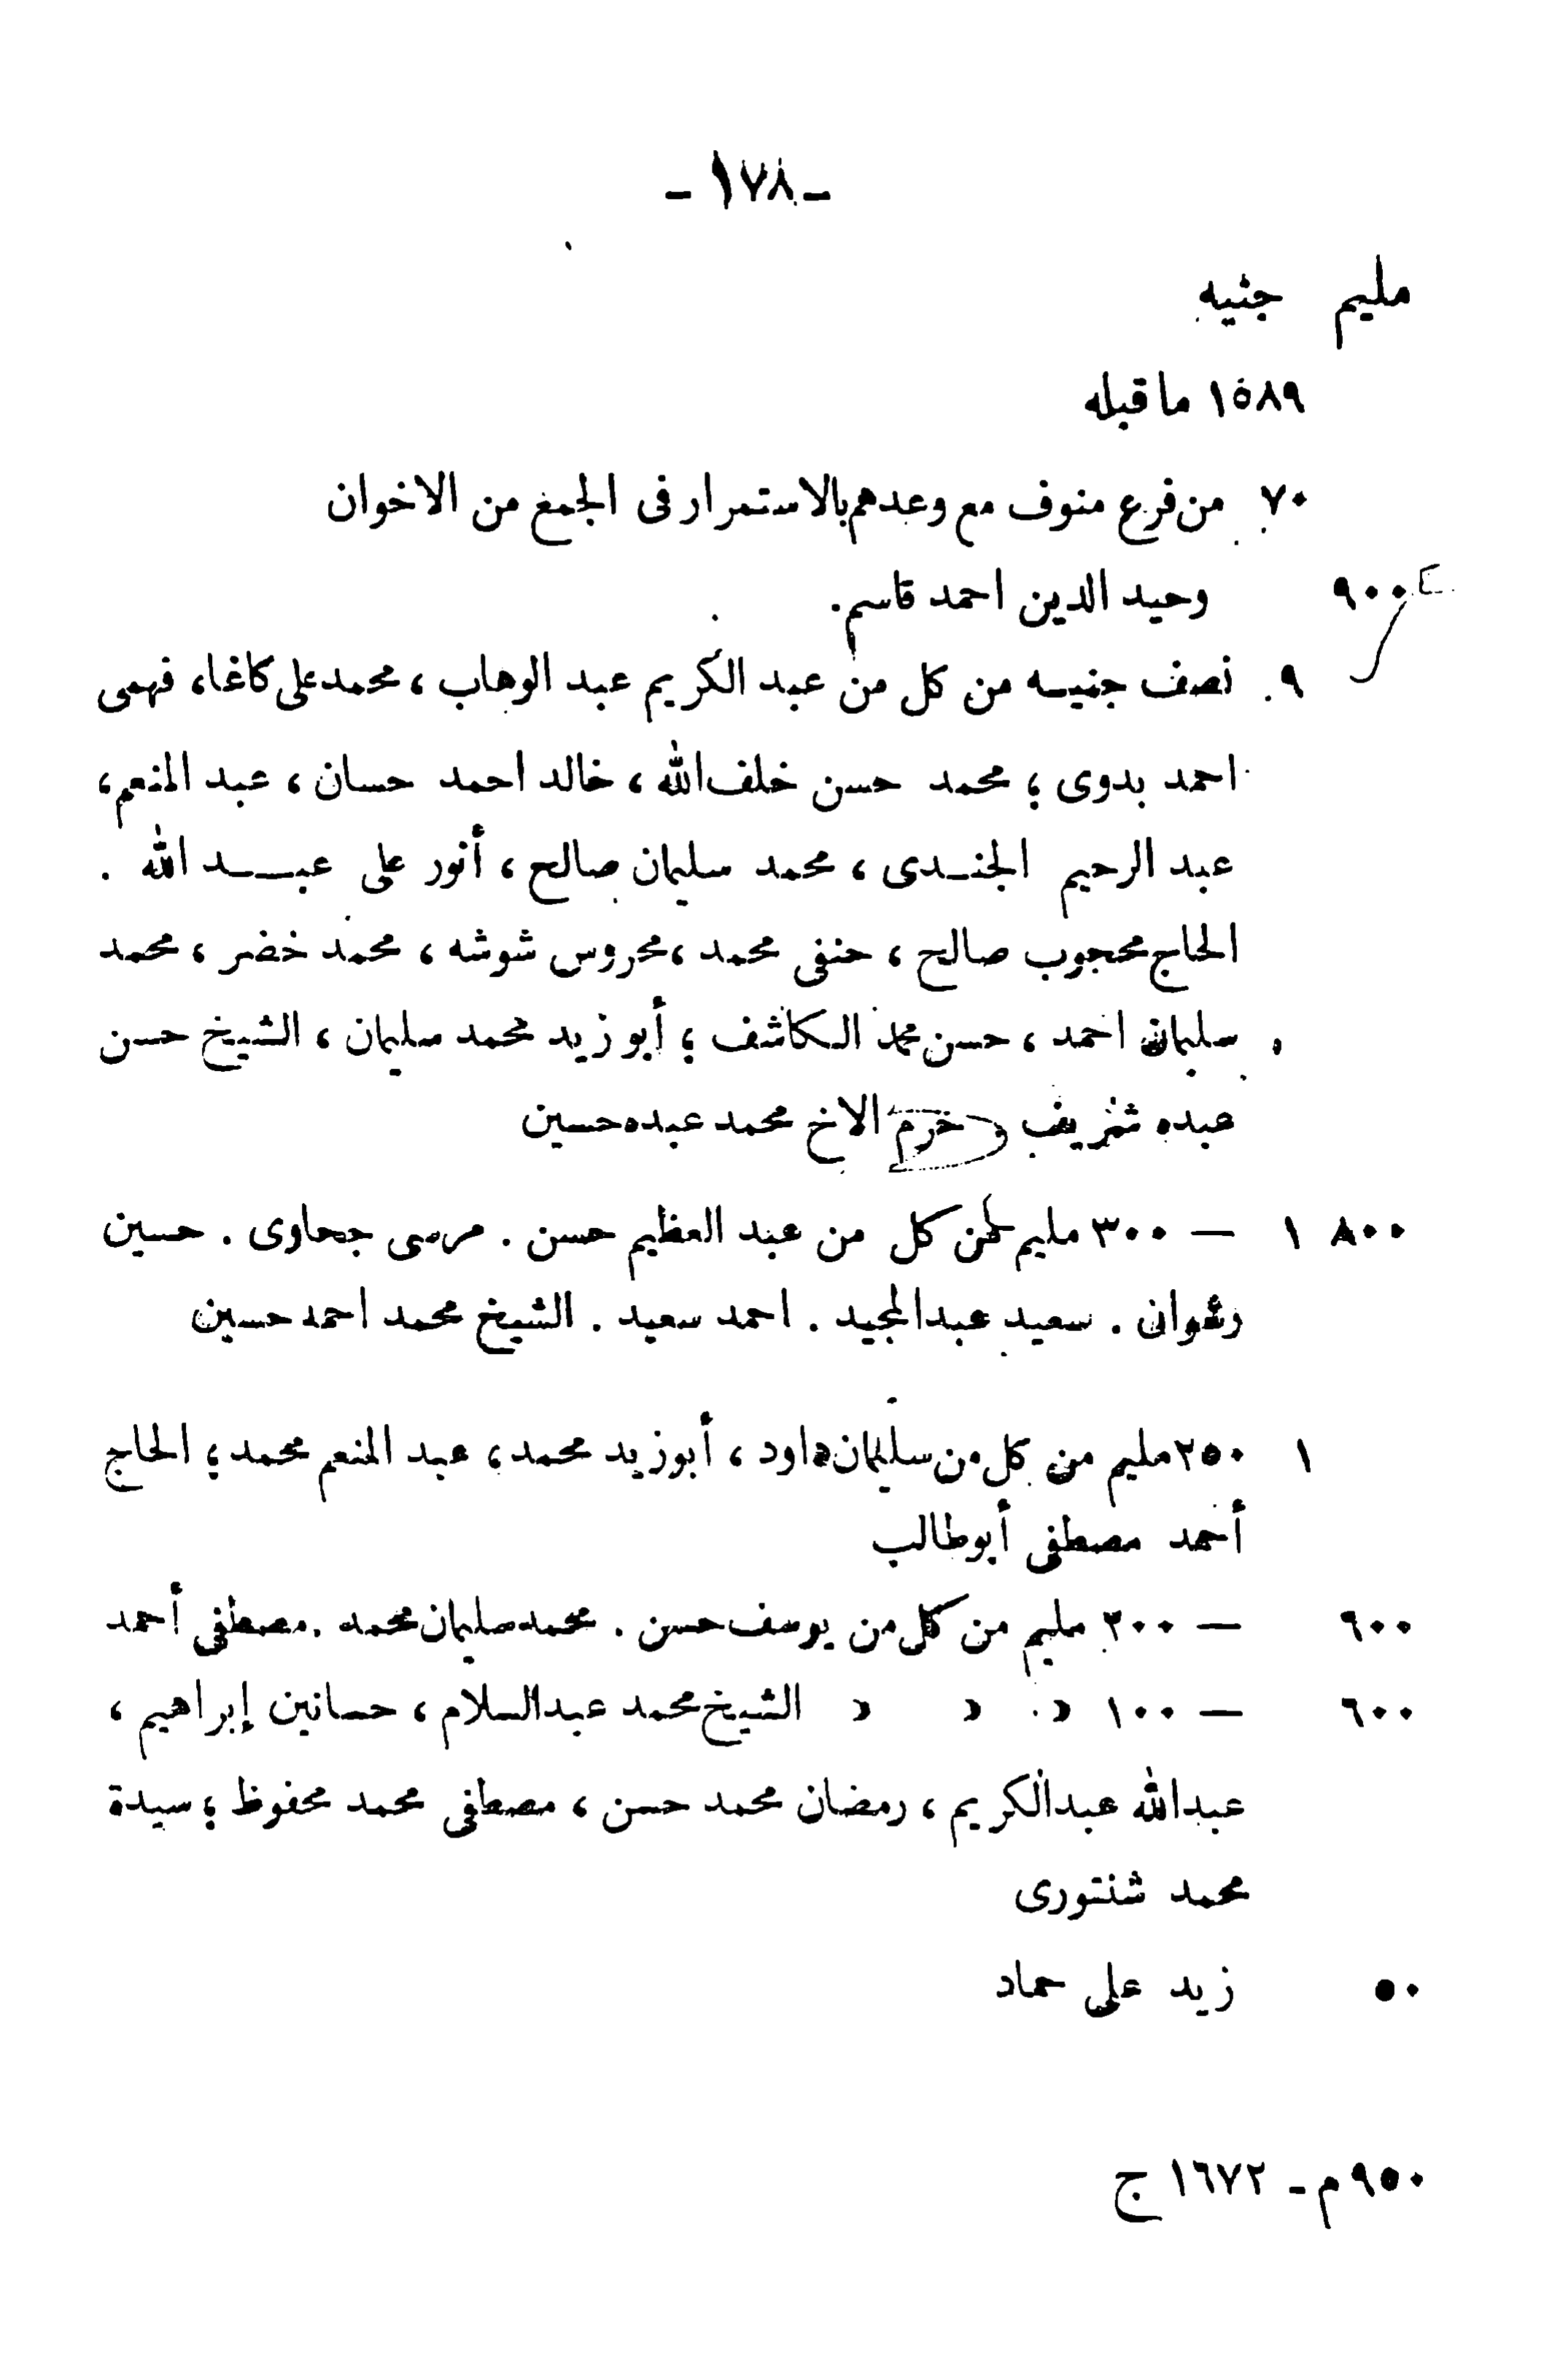 - ١٧٨ -
مليم جنيه
١٥٨٩ ما قبله
٧٠ من فرع منوف مع وعدهم بالاستمرار فى الجمع من الاخوان
٩٠٠ وحيد الدين احمد قاسم .
٩ نصف جنيه من كل من عبد الكريم عبد الوهاب ، محمد على كاغا ، فهمى
احمد بدوى ؛ محمد حسن خلف الله ، خالد احمد حسان ، عبد المنعم ،
عبد الرحيم الجندى ، محمد سليمان صالح ، أنور على عبد الله .
الحاج محجوب صالح ، حنفى محمد ، محروس شوشه ، محمد خضر ، محمد
سليمان احمد ، حسن محمد الكاشف ؛ أبو زيد محمد سليمان ، الشيخ حسن
عبده شريف و حرم الاخ محمد عبده حسين
٨٠٠ ١ — ٣٠٠ مليم من كل من عبد العظيم حسن . مرسى جحاوى . حسين
رضوان . سعيد عبد المجيد . احمد سعيد . الشيخ محمد احمد حسين
١ ٢٥٠ مليم من كل من سليمان داود ، أبو زيد محمد ، عبد المنعم محمد ؛ الحاج
أحمد مصطفى أبو طالب
٦٠٠ — ٢٠٠ مليم من كل من يوسف حسن . محمد سليمان محمد . مصطفى أحمد
٦٠٠ — ١٠٠ » » » الشيخ محمد عبد السلام ، حسانين إبراهيم ،
عبد الله عبد الكريم ، رمضان محمد حسن ، مصطفى محمد محفوظ ؛ سيدة
محمد شنتورى
٥٠ زيد على حماد
٩٥٠ م - ١٦٧٢ ج